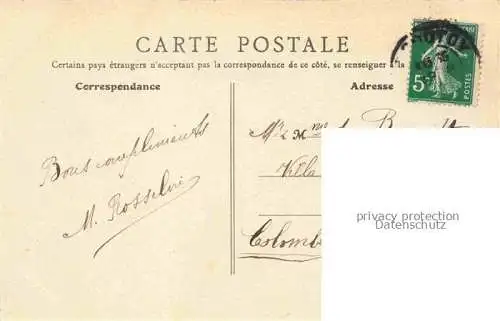 CARTE POSTALE
Certains pays étrangers n'acceptant pas la correspondance de ce côté, se renseigner à la
Correspondance
Adresse
5c
POSTES
Mr & Mme
Villa
Colomb
Bons compliments
M. Rosselin
privacy protection
Datenschutz